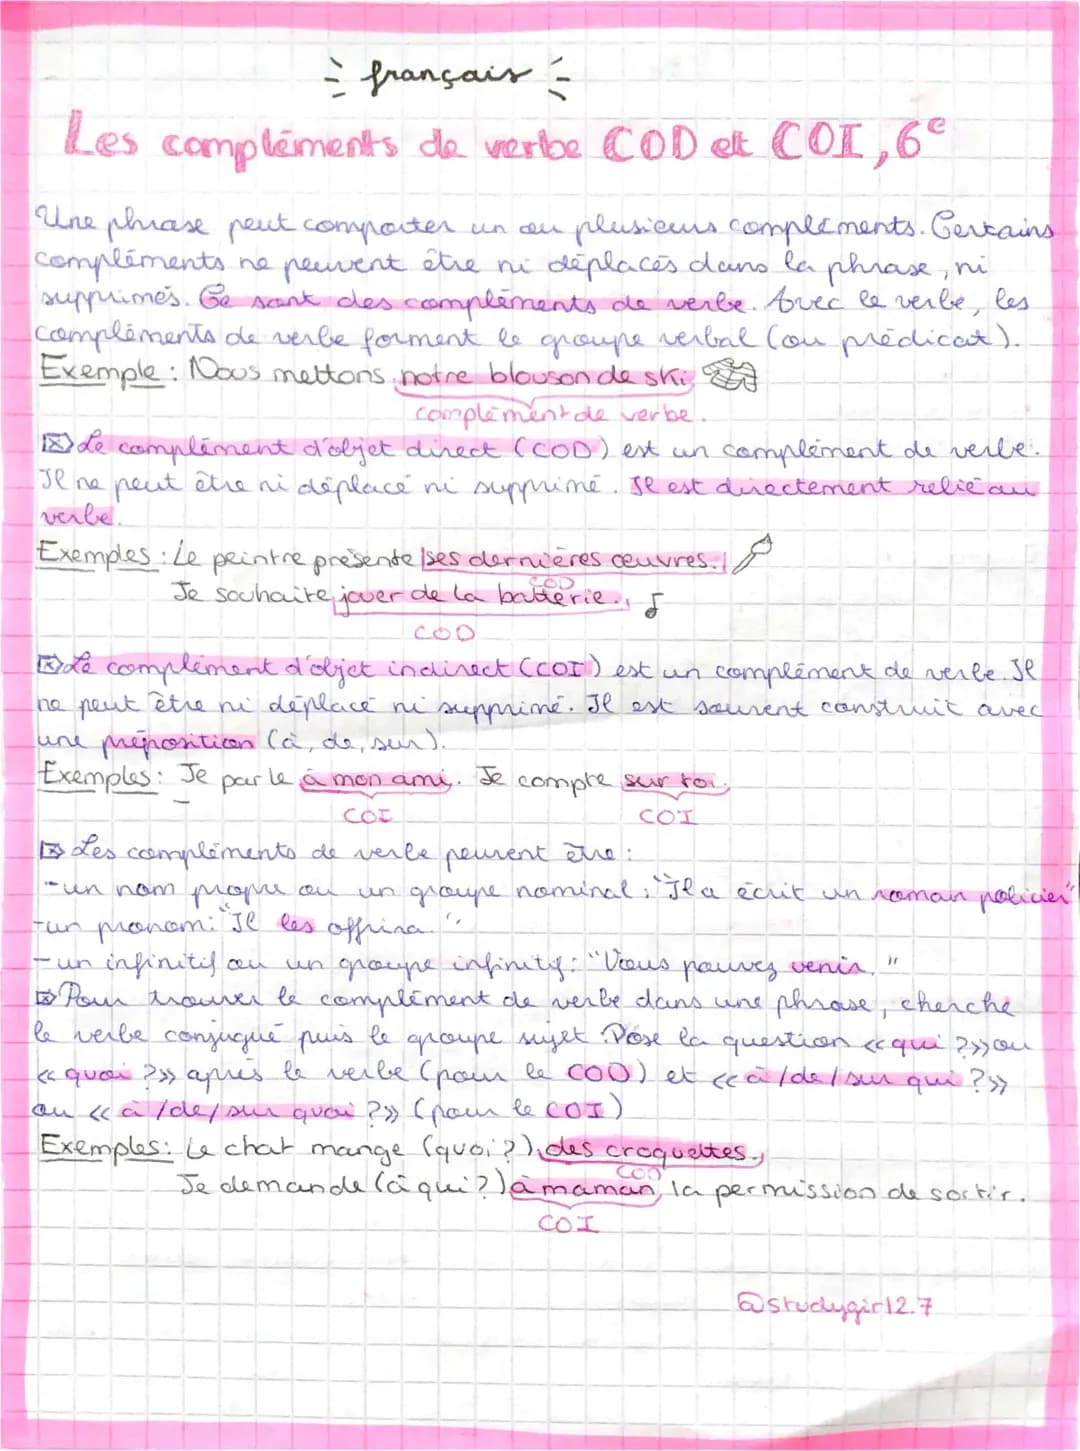 français
Les compléments de verbe COD et COI, 6e
Une phrase peut comporter un ou plusieurs compléments. Certains
compléments ne peuvent être ni déplacés dans la phrase, ni
supprimés. Ce sont des compléments de verbe. Avec le verbe, les
compléments de verbe forment le groupe verbal (ou prédicat).
Exemple : Nous mettons notre blouson de ski
complément de verbe.
Le complément d'objet direct (COD) est un complément de verbe.
Il ne peut être ni déplacé ni supprimé. Il est directement relié au
verbe.
Exemples : Le peintre présente ses dernières œuvres.
COD
Je souhaite jouer de la batterie.
COD
Le complément d'objet indirect (COI) est un complément de verbe. Il
ne peut être ni déplacé ni supprimé. Il est souvent construit avec
une préposition (à, de, sur).
Exemples : Je parle à mon ami. Je compte sur toi.
COI COI
Les compléments de verbe peuvent être :
- un nom propre ou un groupe nominal : "Il a écrit un roman policier"
- un pronom : "Il les offrira."
- un infinitif ou un groupe infinitif : "Vous pouvez venir."
Pour trouver le complément de verbe dans une phrase, cherche
le verbe conjugué puis le groupe sujet. Pose la question « qui ? » ou
« quoi ? » après le verbe (pour le COD) et « à / de / sur qui ? »
ou « à / de / sur quoi ? » (pour le COI)
Exemples : Le chat mange (quoi ?) des croquettes.
COD
Je demande (à qui ?) à maman la permission de sortir.
COI
@studygirl12.7